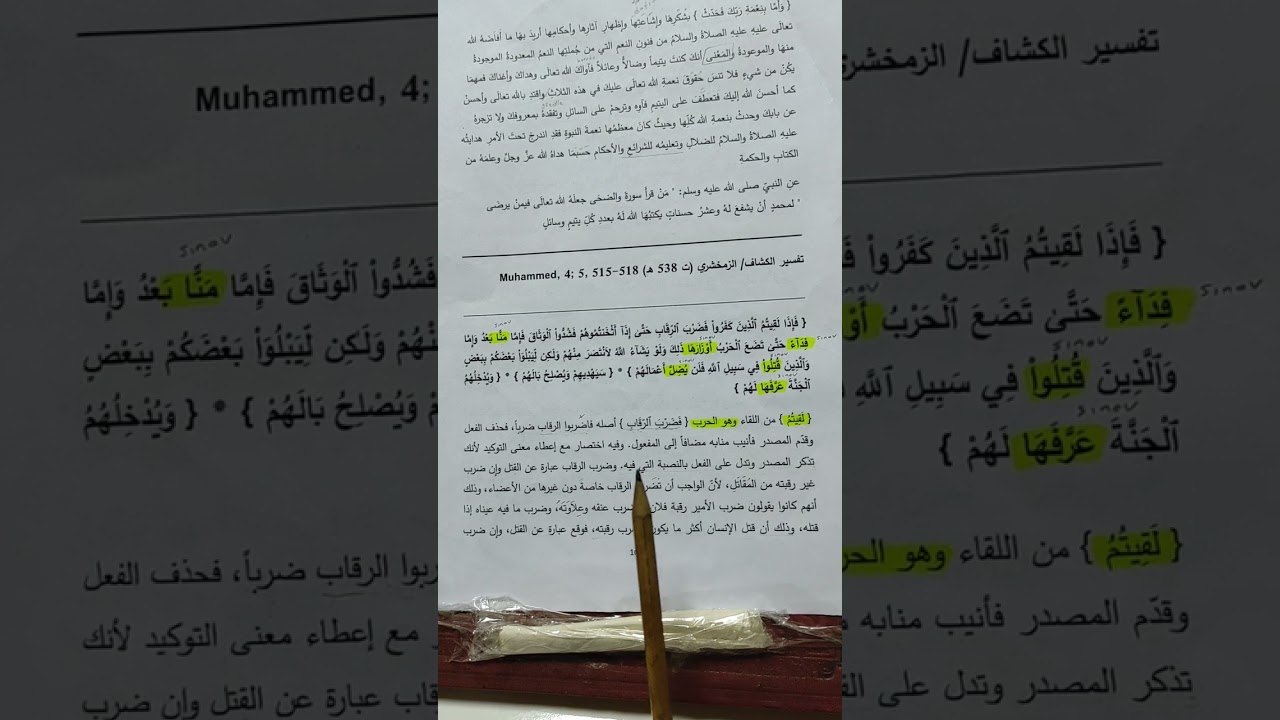 { وَأَمَّا بِنِعْمَةِ رَبِّكَ فَحَدِّثْ } بشكرِها وإشاعتِها وإظهارِ آثارِها وأحكامِها أريدَ بهَا ما أفاضَهُ الله
تعالى عليهِ عليهِ الصلاةُ والسلامُ من فنونِ النعمِ التي من جُملتِها النعمُ المعدودةُ الموجودةُ
منهَا والموعودةُ والمَعْنى أنكَ كنتَ يتيماً وضالاًّ وعائلاً فآواكَ الله تعالَى وهداكَ وأغناكَ فمهمَا
يكُنْ من شيءٍ فلا تنسَ حقوقَ نعمةِ الله تعالَى عليكَ في هذه الثلاثِ واقتدِ بالله تعالَى وأحسنْ
كما أحسنَ الله إليكَ فتعطفْ على اليتيمِ فآوهِ وترحمْ على السائلِ وتفقدهُ بمعروفكَ ولا تزجرهُ
عن بابكَ وحدثْ بنعمةِ الله كُلِّها وحيثُ كانَ معظمُها نعمةَ النبوةِ فقدِ اندرجَ تحتَ الأمرِ هدايتُه
عليهِ الصلاةُ والسلامُ للضلالِ وتعليمُه للشرائعِ والأحكامِ حَسبَمَا هداهُ الله عزَّ وجلَّ وعلمَهُ من
الكتابِ والحكمةِ
عنِ النبيِّ صلى الله عليه وسلم: " مَنْ قرأَ سورةَ والضحَى جعلَهُ الله تعالَى فيمنْ يرضَى
" لمحمدٍ أنْ يشفعَ لهُ وعشرُ حسناتٍ يكتبُهَا الله لَهُ بعددِ كُلِّ يتيمٍ وسائلٍ
تفسير الكشاف/ الزمخشري (ت 538 هـ) Muhammed, 4; 5. 515-518
{ فَإِذَا لَقِيتُمُ ٱلَّذِينَ كَفَرُواْ فَضَرْبَ ٱلرِّقَابِ حَتَّىٰ إِذَآ أَثْخَنتُمُوهُمْ فَشُدُّواْ ٱلْوَثَاقَ فَإِمَّا مَنًّا بَعْدُ وَإِمَّا
فِدَآءً حَتَّىٰ تَضَعَ ٱلْحَرْبُ أَوْزَارَهَا ذَٰلِكَ وَلَوْ يَشَآءُ ٱللَّهُ لاَنتَصَرَ مِنْهُمْ وَلَٰكِن لِّيَبْلُوَاْ بَعْضَكُمْ بِبَعْضٍ
وَٱلَّذِينَ قُتِلُواْ فِي سَبِيلِ ٱللَّهِ فَلَن يُضِلَّ أَعْمَالَهُمْ } * { سَيَهْدِيهِمْ وَيُصْلِحُ بَالَهُمْ } * { وَيُدْخِلُهُمُ
ٱلْجَنَّةَ عَرَّفَهَا لَهُمْ }
{ لَقِيتُمُ } من اللقاء وهو الحرب { فَضَرْبَ ٱلرِّقَابِ } أصله فاضربوا الرقاب ضرباً، فحذف الفعل
وقدّم المصدر فأنيب منابه مضافاً إلى المفعول. وفيه اختصار مع إعطاء معنى التوكيد لأنك
تذكر المصدر وتدل على الفعل بالنصبة التي فيه. وضرب الرقاب عبارة عن القتل وإن ضرب
غير رقبته من المَقَاتَلِ، لأنّ الواجب أن تضرب الرقاب خاصة دون غيرها من الأعضاء، وذلك
أنهم كانوا يقولون ضرب الأمير رقبة فلان وضرب عنقه وعِلَاوَتَهُ، وضرب ما فيه عيناه إذا
قتله، وذلك أن قتل الإنسان أكثر ما يكون بضرب رقبته، فوقع عبارة عن القتل، وإن ضرب